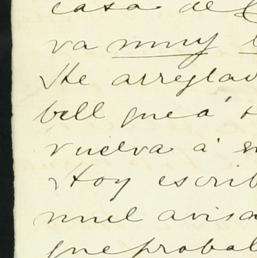 casa de
va muy
He arreglad
bell que á
vuelva á su
Hoy escrib
nuel avisa
que probab